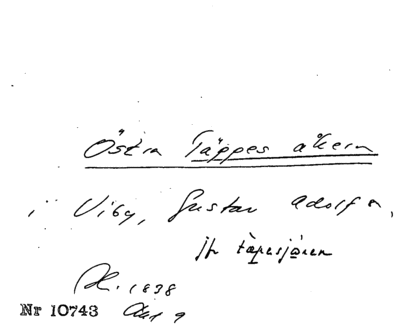 Östra Täppes åkern
i Viby, Gustav Adolf s.
jfr täpesjären
H. 1838
Nr 10743 Akt 9